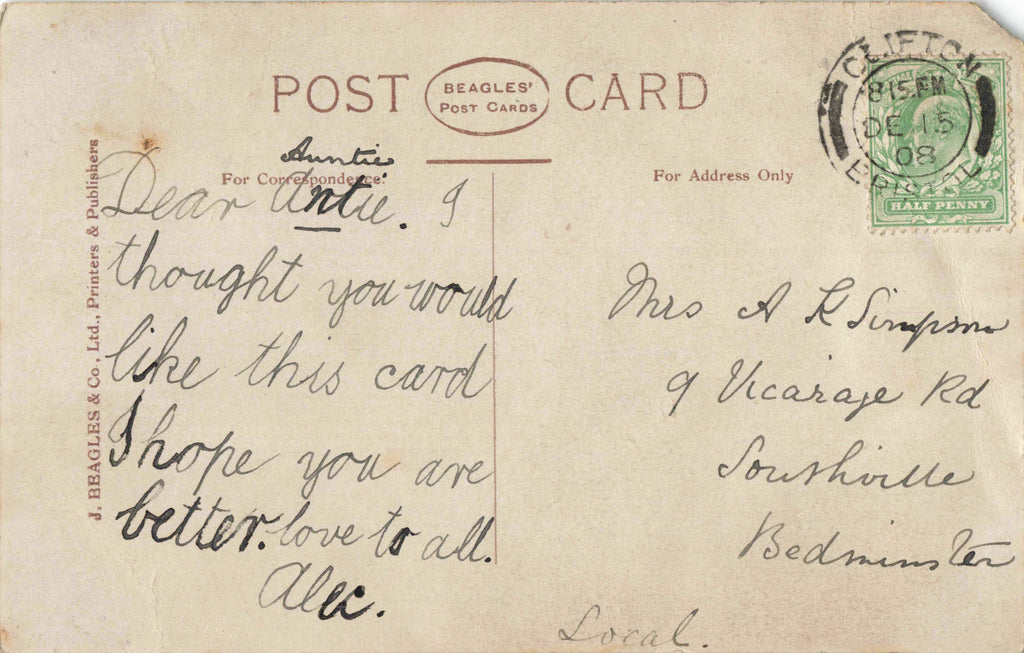 POST CARD
BEAGLES'
POST CARDS
For Correspondence.
For Address Only
J. BEAGLES & Co., Ltd., Printers & Publishers
CLIFTON
8 15 PM
DE 15
08
BRISTOL
POSTAGE
HALF PENNY
Auntie
Dear Antie. I
thought you would
like this card
I hope you are
better. love to all.
Alec.
Mrs A K Simpson
9 Vicarage Rd
Southville
Bedminster
Local.